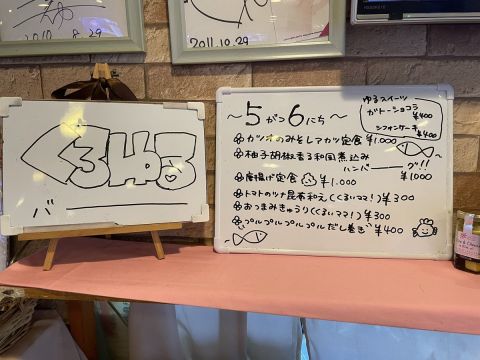 2010 8 29
2011.10.29
くるみゆる
バー
～5がつ6にち～
ゆるスイーツ
ガトーショコラ
¥400
シフォンケーキ
¥400
カツオのみそしアカツ定食 ¥1.000
柚子胡椒香る和風煮込み
ハンバーグ!! ¥1000
唐揚げ定食 ¥1.000
トマトのツナ昆布和え(くるいママ!) ¥300
おつまみきゅうり(くるいママ!) ¥300
プルプルプルプルだし巻き ¥400